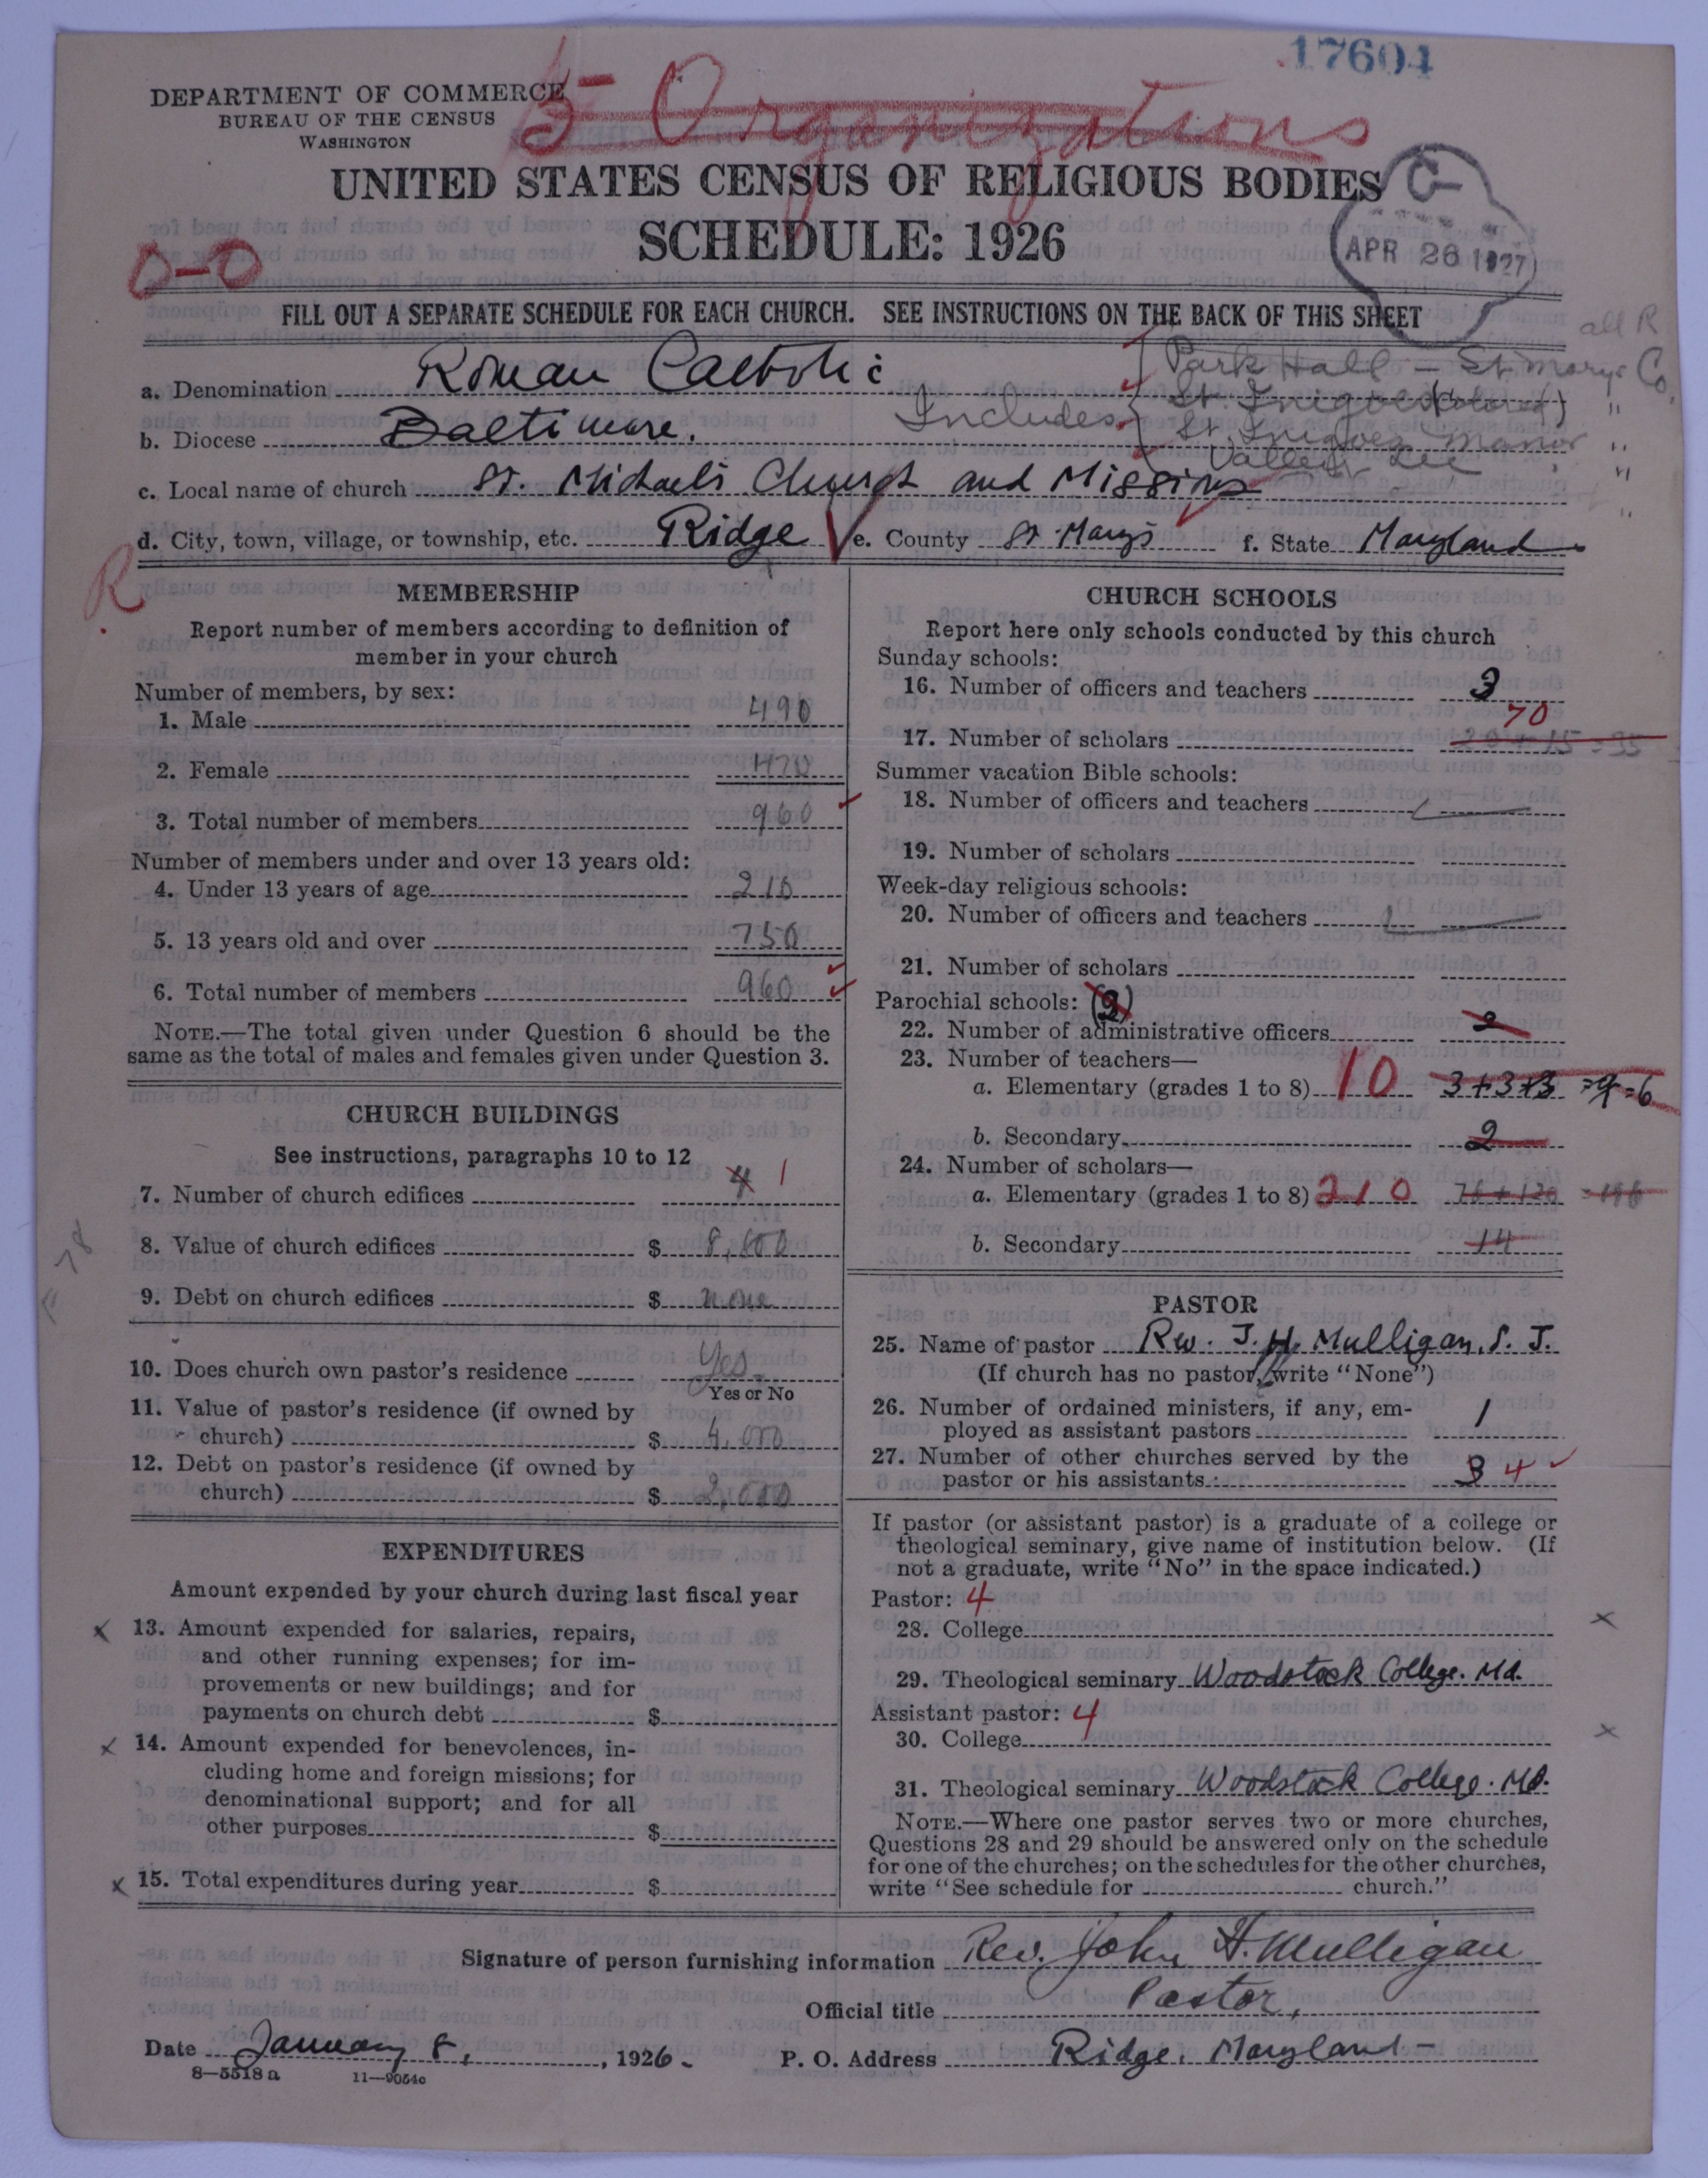 17604
DEPARTMENT OF COMMERCE
BUREAU OF THE CENSUS
WASHINGTON
5 Organizations
UNITED STATES CENSUS OF RELIGIOUS BODIES
SCHEDULE: 1926
C
APR 26 1927
0-0
FILL OUT A SEPARATE SCHEDULE FOR EACH CHURCH. SEE INSTRUCTIONS ON THE BACK OF THIS SHEET
all R
Includes { Park Hall - St. Mary's Co.
St. Inigoes (Colored) "
St. Inigoes Manor "
Valley Lee "
a. Denomination Roman Catholic
b. Diocese Baltimore.
c. Local name of church St. Michael's Church and Missions
d. City, town, village, or township, etc. Ridge e. County St Mary's f. State Maryland
R
MEMBERSHIP
Report number of members according to definition of
member in your church
Number of members, by sex:
1. Male 490
2. Female 470
3. Total number of members 960
Number of members under and over 13 years old:
4. Under 13 years of age 210
5. 13 years old and over 750
6. Total number of members 960
NOTE.—The total given under Question 6 should be the
same as the total of males and females given under Question 3.
CHURCH BUILDINGS
See instructions, paragraphs 10 to 12
7. Number of church edifices 4 1
8. Value of church edifices $ 8,000
9. Debt on church edifices $ none
10. Does church own pastor's residence Yes
Yes or No
11. Value of pastor's residence (if owned by
church) $ 4,000
12. Debt on pastor's residence (if owned by
church) $ 2,000
EXPENDITURES
Amount expended by your church during last fiscal year
x 13. Amount expended for salaries, repairs,
and other running expenses; for im-
provements or new buildings; and for
payments on church debt $
x 14. Amount expended for benevolences, in-
cluding home and foreign missions; for
denominational support; and for all
other purposes $
x 15. Total expenditures during year $
CHURCH SCHOOLS
Report here only schools conducted by this church
Sunday schools:
16. Number of officers and teachers 3
70
17. Number of scholars 20 + 15 = 35
Summer vacation Bible schools:
18. Number of officers and teachers
19. Number of scholars
Week-day religious schools:
20. Number of officers and teachers
21. Number of scholars
Parochial schools: (3)
22. Number of administrative officers 2
23. Number of teachers—
a. Elementary (grades 1 to 8) 10 3+3+3 =9=6
b. Secondary 2
24. Number of scholars—
a. Elementary (grades 1 to 8) 210 76+120 =196
b. Secondary 14
PASTOR
25. Name of pastor Rev. J. H. Mulligan, S. J.
(If church has no pastor, write "None")
26. Number of ordained ministers, if any, em-
ployed as assistant pastors 1
27. Number of other churches served by the
pastor or his assistants 3 4
If pastor (or assistant pastor) is a graduate of a college or
theological seminary, give name of institution below. (If
not a graduate, write "No" in the space indicated.)
Pastor: 4
28. College x
29. Theological seminary Woodstock College. Md.
Assistant pastor: 4
30. College x
31. Theological seminary Woodstock College. Md.
NOTE.—Where one pastor serves two or more churches,
Questions 28 and 29 should be answered only on the schedule
for one of the churches; on the schedules for the other churches,
write "See schedule for church."
Signature of person furnishing information Rev. John H. Mulligan
Official title Pastor,
Date January 8, 1926. P. O. Address Ridge, Maryland -
8—5518 a 11—9054c